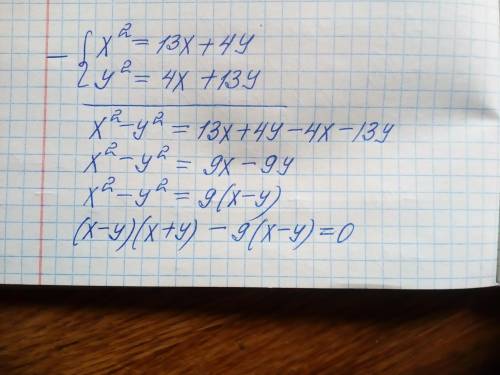 - { x² = 13x + 4y
y² = 4x + 13y
x² - y² = 13x + 4y - 4x - 13y
x² - y² = 9x - 9y
x² - y² = 9(x - y)
(x - y)(x + y) - 9(x - y) = 0